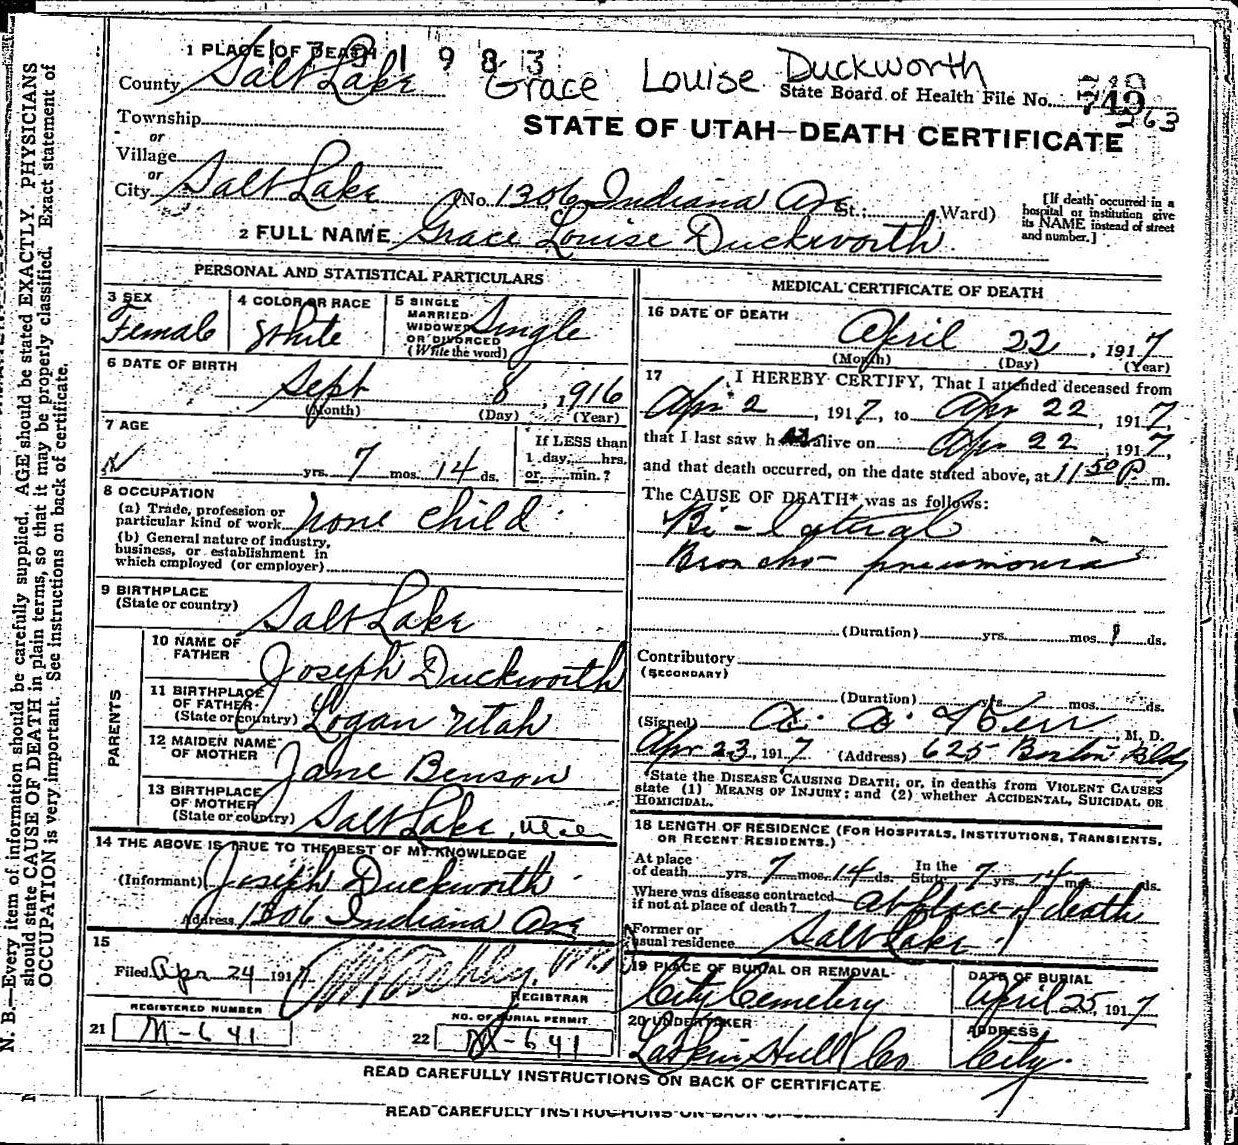 1 PLACE OF DEATH
1983
County Salt Lake
Grace Louise Duckworth
State Board of Health File No. 749
263
Township
or
Village
or
City Salt Lake (No. 1306 Indiana Ave St.; Ward)
STATE OF UTAH—DEATH CERTIFICATE
[If death occurred in a hospital or institution give its NAME instead of street and number.]
2 FULL NAME Grace Louise Duckworth
PERSONAL AND STATISTICAL PARTICULARS
3 SEX
Female
4 COLOR OR RACE
White
5 SINGLE
MARRIED
WIDOWED
OR DIVORCED
(Write the word)
Single
6 DATE OF BIRTH
Sept 8, 1916
(Month) (Day) (Year)
7 AGE
yrs. 7 mos. 14 ds.
If LESS than
1 day, hrs.
or min.?
8 OCCUPATION
(a) Trade, profession or
particular kind of work none child
(b) General nature of industry,
business, or establishment in
which employed (or employer)
9 BIRTHPLACE
(State or country) Salt Lake
PARENTS
10 NAME OF
FATHER Joseph Duckworth
11 BIRTHPLACE
OF FATHER
(State or country) Logan Utah
12 MAIDEN NAME
OF MOTHER Jane Benson
13 BIRTHPLACE
OF MOTHER
(State or country) Salt Lake, Utah
14 THE ABOVE IS TRUE TO THE BEST OF MY KNOWLEDGE
(Informant) Joseph Duckworth
Address 1306 Indiana Ave
15
Filed Apr 24 1917
REGISTRAR
REGISTERED NUMBER
21 M-641
NO. OF BURIAL PERMIT
22 M-641
MEDICAL CERTIFICATE OF DEATH
16 DATE OF DEATH
April 22, 1917
(Month) (Day) (Year)
17 I HEREBY CERTIFY, That I attended deceased from
Apr 2, 1917, to Apr 22, 1917,
that I last saw her alive on Apr 22, 1917,
and that death occurred, on the date stated above, at 11 50 P. m.
The CAUSE OF DEATH* was as follows:
Bi-lateral
Broncho pneumonia
(Duration) yrs. mos. ds.
Contributory
(SECONDARY)
(Duration) yrs. mos. ds.
(Signed) A. A. Kerr, M. D.
Apr 23, 1917 (Address) 625 Boston Bldg
*State the DISEASE CAUSING DEATH; or, in deaths from VIOLENT CAUSES
state (1) MEANS OF INJURY; and (2) whether ACCIDENTAL, SUICIDAL OR
HOMICIDAL.
18 LENGTH OF RESIDENCE (FOR HOSPITALS, INSTITUTIONS, TRANSIENTS,
OR RECENT RESIDENTS.)
At place
of death yrs. 7 mos. 14 ds. In the State 7 yrs. 14 mos. ds.
Where was disease contracted
if not at place of death? at place of death
Former or
usual residence Salt Lake
19 PLACE OF BURIAL OR REMOVAL
City Cemetery
DATE OF BURIAL
April 25, 1917
20 UNDERTAKER
Larkin Hull Co
ADDRESS
City
READ CAREFULLY INSTRUCTIONS ON BACK OF CERTIFICATE
READ CAREFULLY INSTRUCTIONS ON BACK OF
N. B.—Every item of information should be carefully supplied. AGE should be stated EXACTLY. PHYSICIANS
should state CAUSE OF DEATH in plain terms, so that it may be properly classified. Exact statement of
OCCUPATION is very important. See instructions on back of certificate.